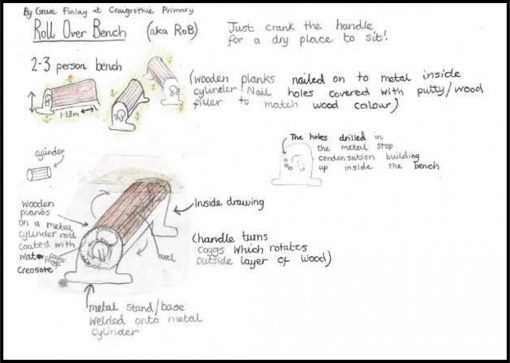 By Grace Finlay at Craigrothie Primary
Roll Over Bench (aka RoB)
Just crank the handle
for a dry place to sit!
2-3 person bench
1·13m
(wooden planks nailed on to metal inside
cylinder! Nail holes covered with putty/wood
filler to match wood colour)
The holes drilled in
the metal stop
condensation building
up inside the bench
cylinder
Wooden
planks
on a metal
cylinder roll
coated with
water
Creosote
Inside drawing
(handle turns
Coggs which rotates
outside layer of wood)
metal stand/base
welded onto metal
cylinder